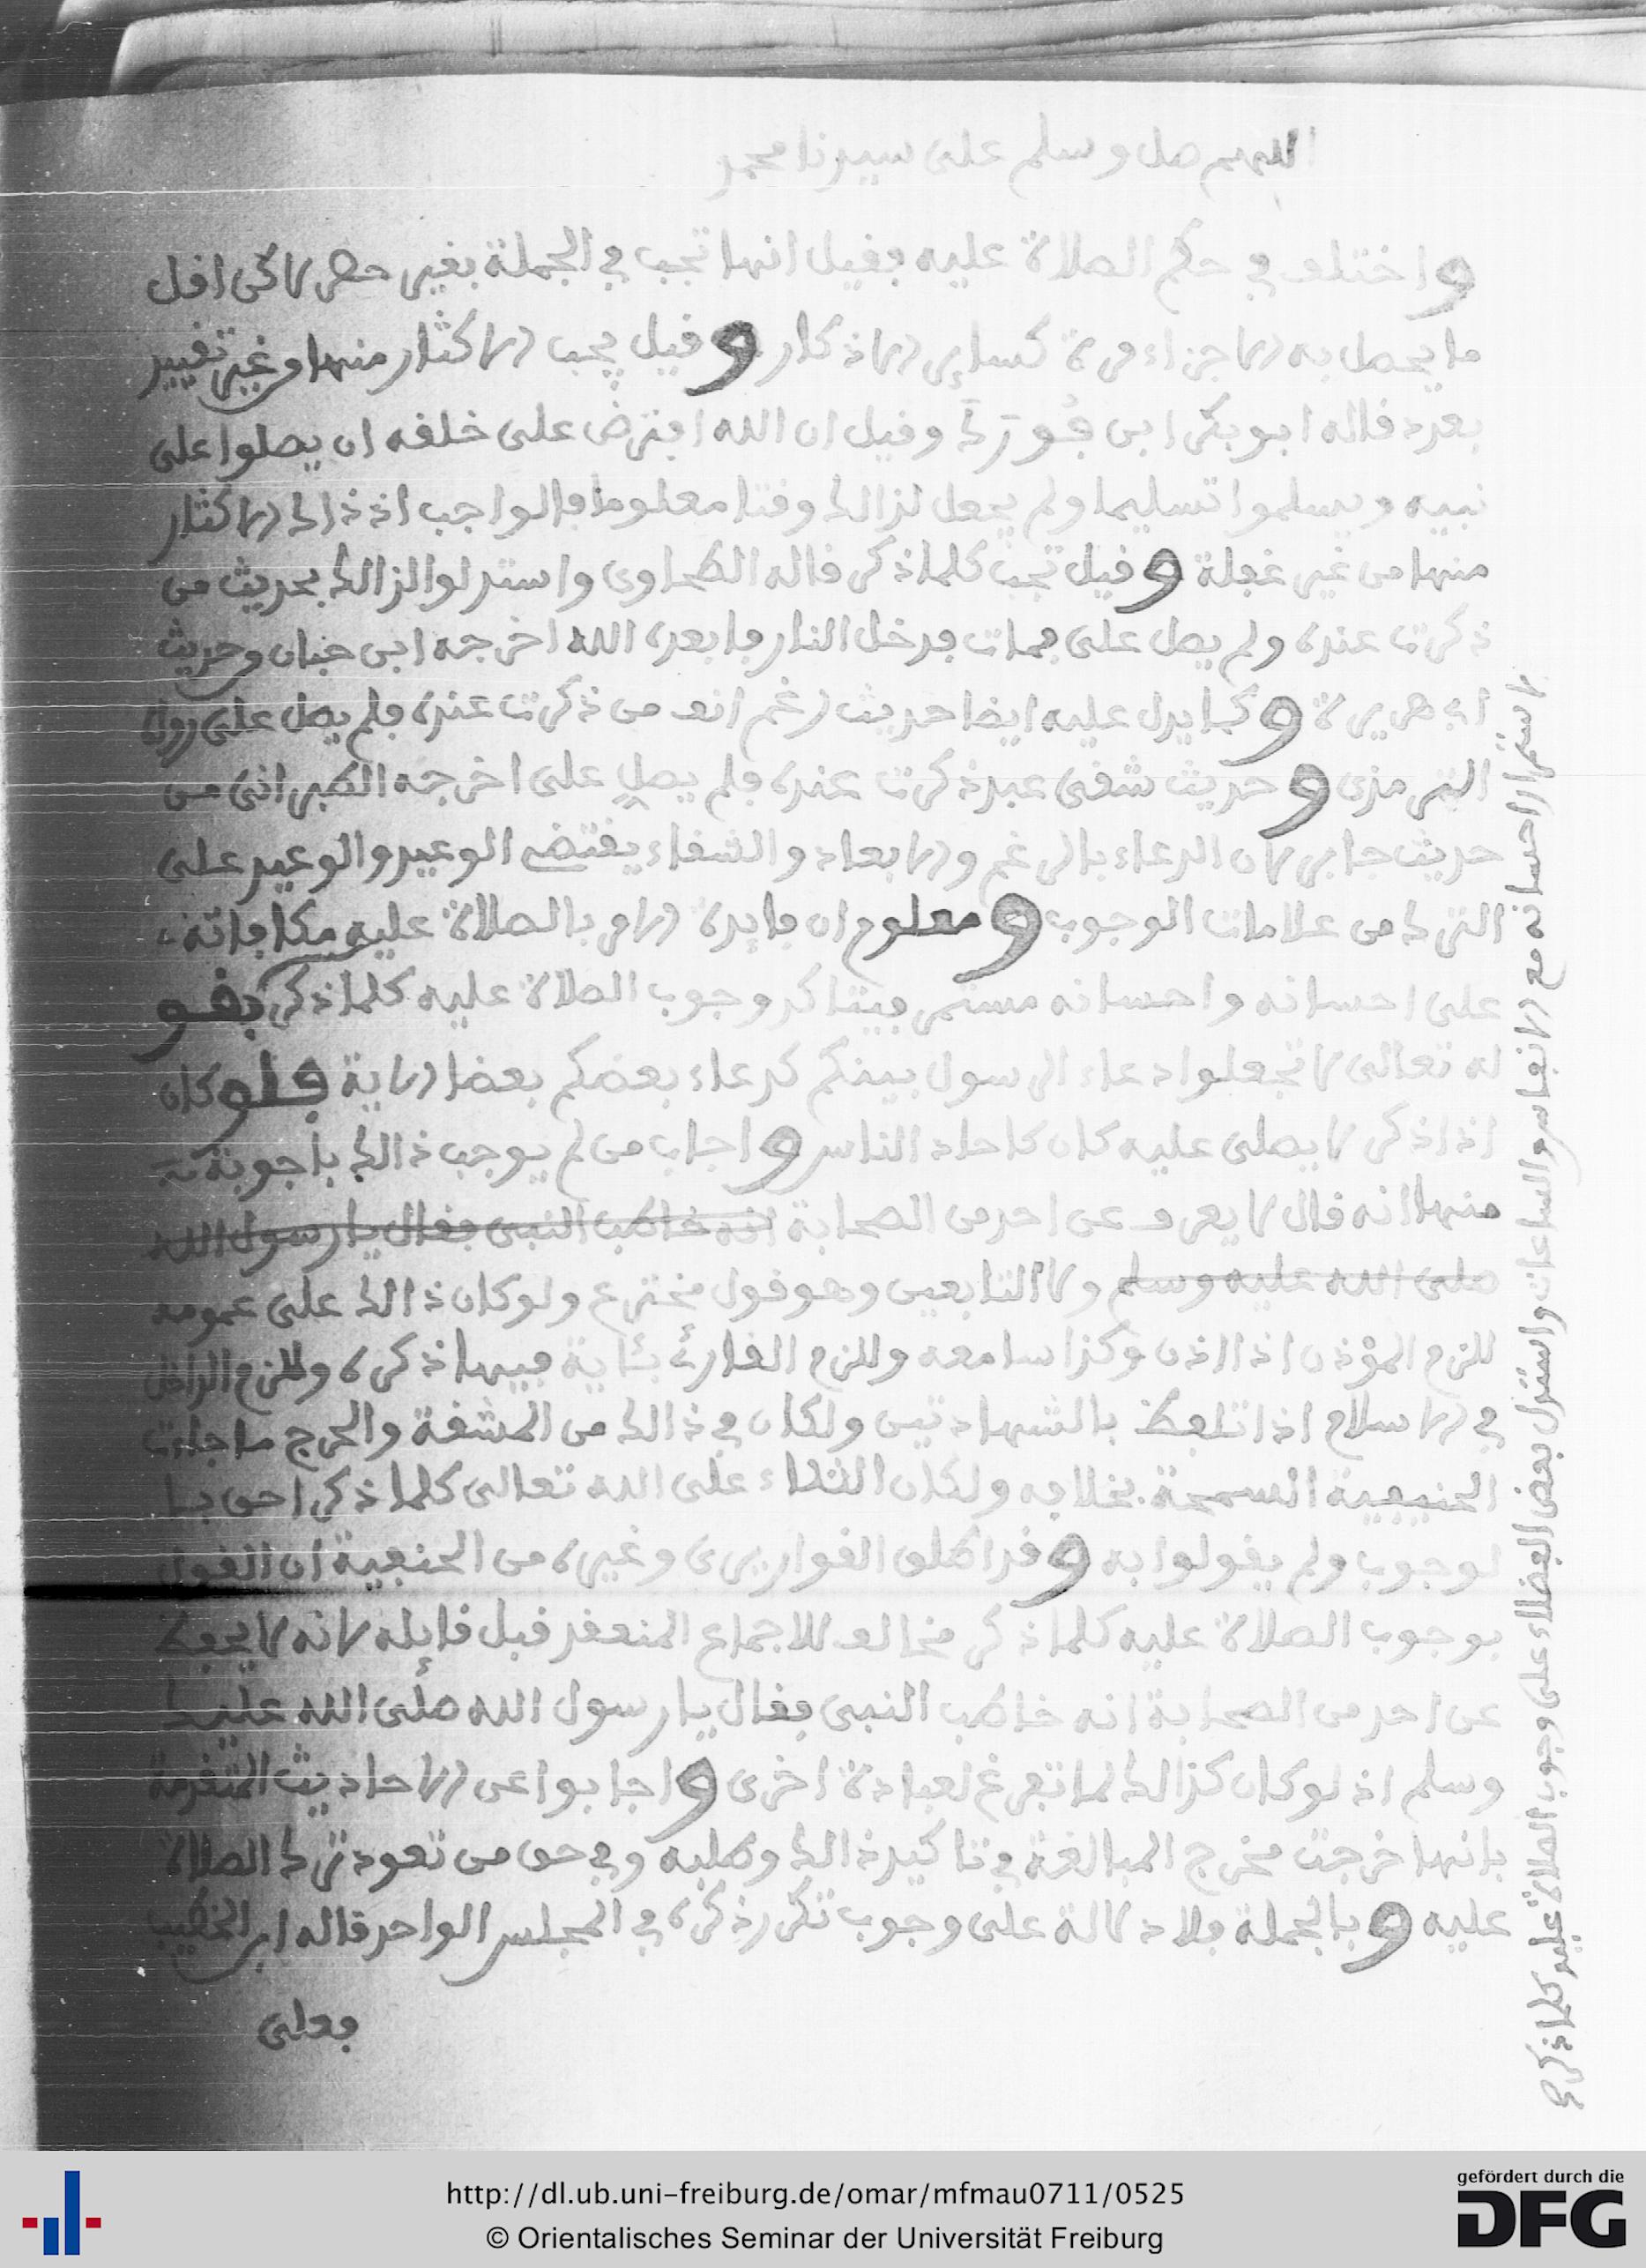 اللهم صل وسلم على سيدنا محمد
واختلف في حكم الصلاة عليه فقيل انها تجب في الجملة بغير حصر لاكن اقل
ما يحصل به الاجزاء مرة كساير الاذكار وقيل يجب الاكثار منها من غير تقييد
بعدد قاله ابو بكر ابن وقيل ان الله افترض على خلقه ان يصلوا على
نبيه ويسلموا تسليما ولم يجعل لذالك وقتا معلوما فالواجب اذ ذاك الاكثار
منها من غير غفلة وقيل تجب كلما ذكر قاله الطحاوي واستدلوا لذالك بحديث من
ذكرت عنده ولم يصل على فمات فدخل النار فابعده الله اخرجه ابن حبان من حديث
ابي هريرة وكما يدل عليه ايضا حديث رغم انف من ذكرت عنده فلم يصل على رواه
الترمذي وحديث شقى عبد ذكرت عنده فلم يصل على اخرجه الطبراني من
حديث جابر لان الدعاء بالرغم والابعاد والشقاء يقتضي الوعيد والوعيد على
الترك من علامات الوجوب ومعلوم ان فايدة الامر بالصلاة عليه مكافاته
على احسانه واحسانه مستمر فيتاكد وجوب الصلاة عليه كلما ذكر بقو
له تعالى لا تجعلوا دعاء الرسول بينكم كدعاء بعضكم بعضا الاية فلو كان
اذا ذكر لا يصلى عليه كان كاحاد الناس واجاب من لم يوجب ذالك باجوبة
منها انه قال لا يعرف عن احد من الصحابة انه خاطب النبي فقال يا رسول الله
صلى الله عليه وسلم ولا التابعين وهو قول مخترع ولو كان ذالك على عمومه
للزم المؤذن اذا اذن وكذا سامعه وللزم القارئ بئاية فيها ذكره وللزم الداخل
في الاسلام اذا تلفظ بالشهادتين ولكان في ذالك من المشقة والحرج ما جاءت
الحنيفية السمحة بخلافه ولكان الثناء على الله تعالى كلما ذكر احق با
لوجوب ولم يقولوا به وقد اطلق القواريرى وغيره من الحنفية ان القول
بوجوب الصلاة عليه كلما ذكر مخالف للاجماع المنعقد قبل قايله لانه لا يحفظ
عن احد من الصحابة انه خاطب النبي فقال يا رسول الله صلى الله عليك
وسلم اذ لو كان كذالك لما تفرغ لعبادة اخرى واجابوا عن الاحاديث المتقدمة
بانها خرجت مخرج المبالغة في تاكيد ذالك وطلبه وفي حق من تعود ترك الصلاة
عليه وبالجملة فلا دلالة على وجوب تكرر ذكره في المجلس الواحد قاله ابن الخطيب
فعلى
واستدل بعض الفضلاء على وجوب الصلاة عليه كلما ذكر
باستمرار احسانه مع الانفاس والساعات
http://dl.ub.uni-freiburg.de/omar/mfmau0711/0525
© Orientalisches Seminar der Universität Freiburg
gefördert durch die
DFG